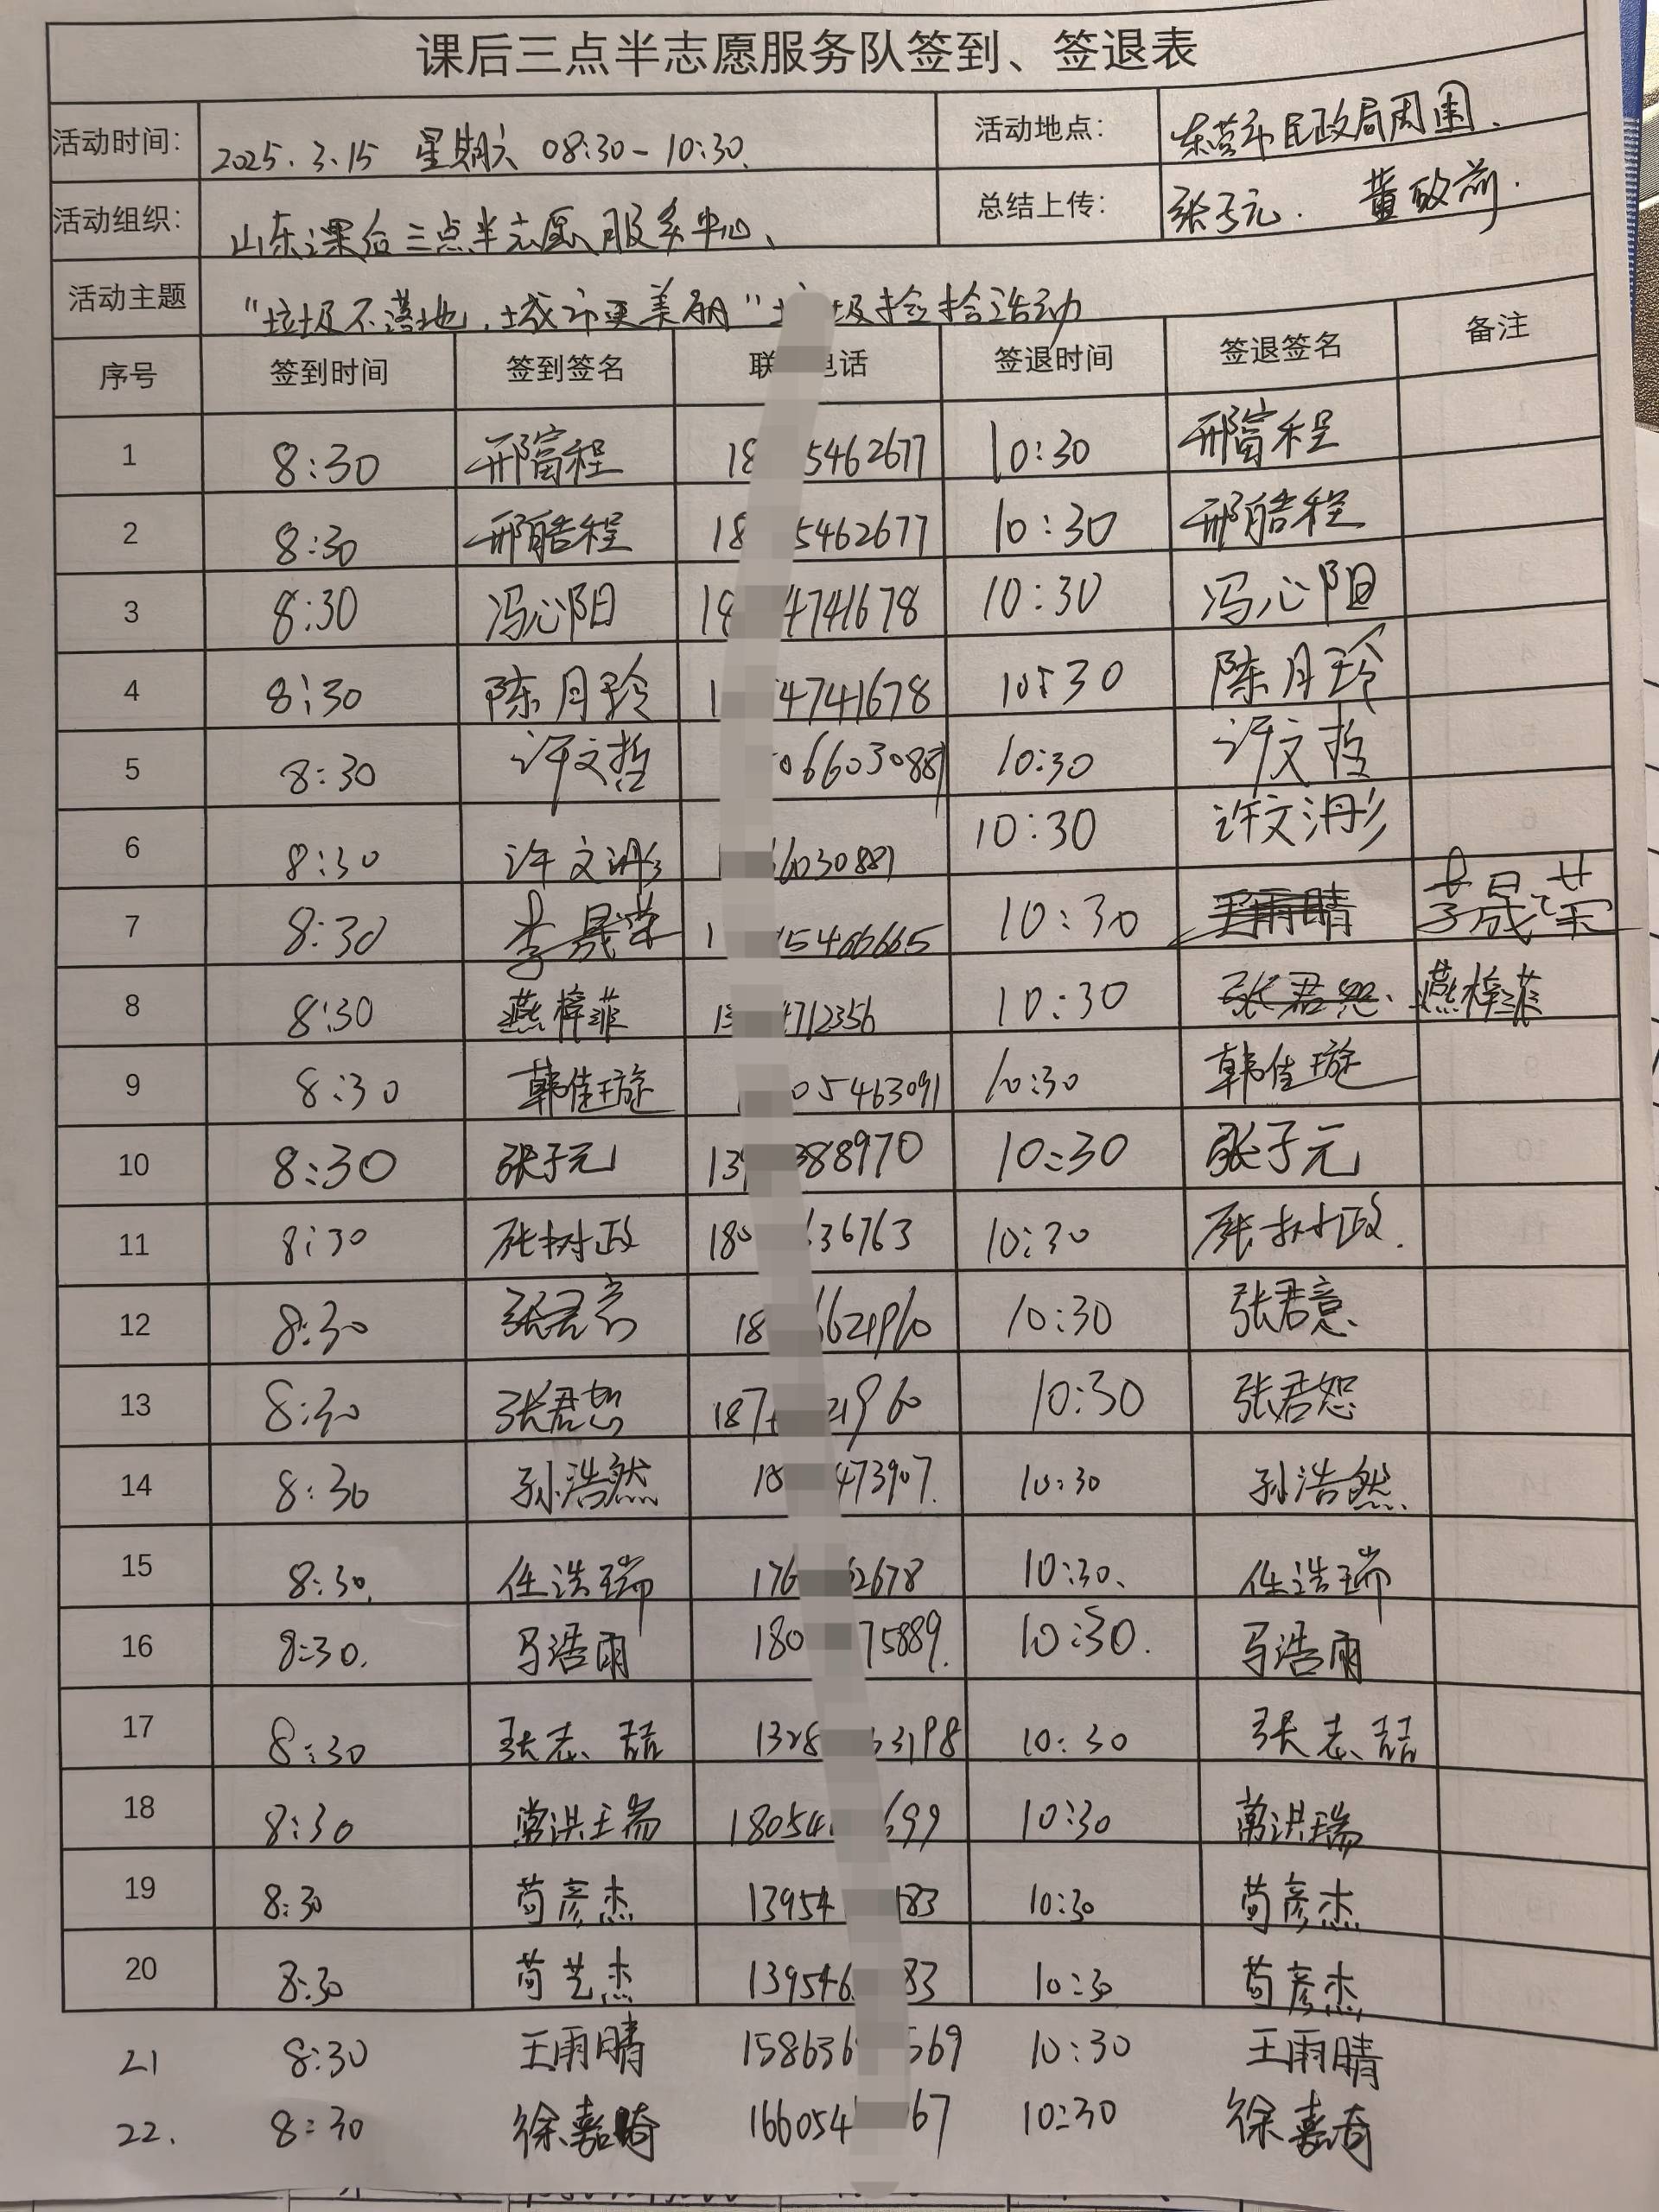 课后三点半志愿服务队签到、签退表
活动时间: 2025.3.15 星期六 08:30-10:30 活动地点: 东营市民政局周围.
活动组织: 山东课后三点半志愿服务中心、 总结上传: 张子元.
活动主题 "垃圾不落地,城市更美丽"垃圾捡拾活动
序号 签到时间 签到签名 联 电话 签退时间 签退签名 备注
1 8:30 邢富程 18 5462677 10:30 邢富程
2 8:30 邢皓程 18 5462677 10:30 邢皓程
3 8:30 冯心阳 18 4741678 10:30 冯心阳
4 8:30 陈月玲 1 4741678 10:30 陈月玲
5 8:30 许文哲 10:30 许文哲
6 8:30 许文 10:30 许文
7 8:30 李晟荣 1 10:30 王雨晴 李晟荣
8 8:30 燕梓菲 13 4712356 10:30 张君恕. 燕梓菲
9 8:30 韩佳璇 05463091 10:30 韩佳璇
10 8:30 张子元 13 388970 10:30 张子元
11 8:30 张树政 180 36763 10:30 张树政.
12 8:30 张君意 18 6621960 10:30 张君意
13 8:30 张君恕 187 21960 10:30 张君恕
14 8:30 孙浩然 18 473907. 10:30 孙浩然
15 8:30. 任浩瑞 176 2678 10:30、 任浩瑞
16 8:30. 马浩雨 180 75889. 10:30. 马浩雨
17 8:30 张志喆 1328 3198 10:30 张志喆
18 8:30 常洪瑞 18054 699 10:30 常洪瑞
19 8:30 苟彦杰 13954 183 10:30 苟彦杰
20 8:30 苟艺杰 139546 83 10:30 苟彦杰
21 8:30 王雨晴 158636 569 10:30 王雨晴
22. 8:30 徐嘉 166054 67 10:30 徐嘉